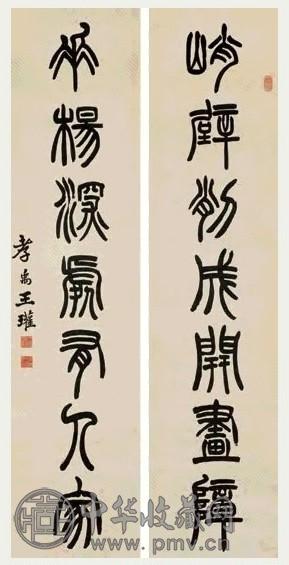 峭壁削成開畫障
垂楊深處有人家
孝禹王瓘
中华收藏网
www.pmv.cn